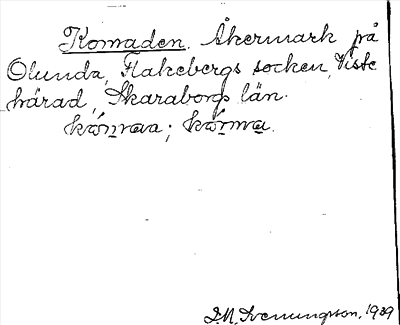 Komaden. Åkermark på
Olunda, Flakebergs socken, Viste
härad, Skaraborgs län.
J.M. Svenungsson, 1939